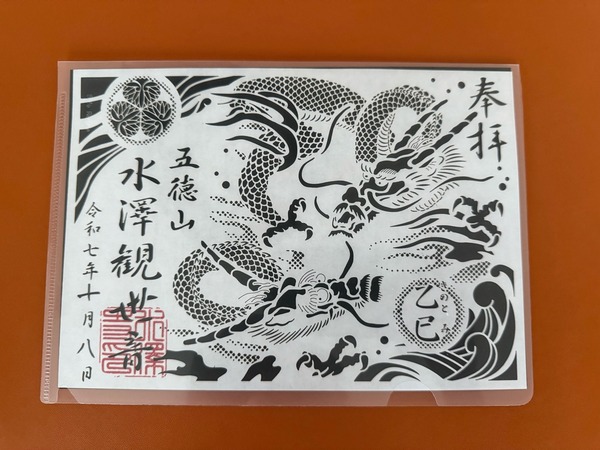 奉拝
五徳山
水澤観世音
令和七年十月八日
きのとみ
乙巳